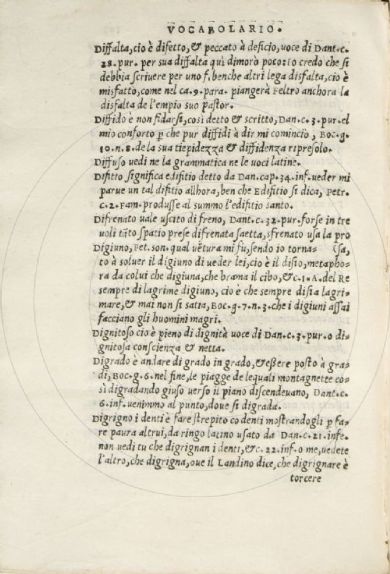 VOCABOLARIO.
Diffalta, cio è difetto, & peccato à deficio, uoce di Dant. c.
28. pur. per sua diffalta quì dimorò poco: Io credo che si
debbia scriuere per uno f. benche altri lega disfalta, cio è
misfatto, come nel ca. 9. para. piangerà Feltro anchora la
disfalta de l'empio suo pastor.
Diffido è non fidarsi, cosi detto & scritto, Dan. c. 3. pur. el
mio conforto p che pur diffidi à dir mi comincio, Boc. g.
10. n. 8. de la sua tiepidezza & diffidenza ripresolo.
Diffuso uedi ne la grammatica ne le uoci latine.
Difitio significa edifitio detto da Dan. cap. 34. inf. ueder mi
parue un tal difitio allhora, ben che Edifitio si dica, Petr.
c. 2. Fam. produsse al summo l'edifitio santo.
Difrenato uale uscito di freno, Dant. c. 32. pur. forse in tre
uoli tāto spatio prese difrenata saetta, sfrenato usa la pro
Digiuno, Pet. son. qual uētura mi fu, sendo io torna⸗ sa,
to à soluer il digiuno di ueder lei, cio è il disio, metapho⸗
ra da colui che digiuna, che brama il cibo, & c. 1. A. del Re
sempre di lagrime digiuno, cio è che sempre disia lagri⸗
mare, & mai non si satia, Boc. g. 7. n. 3. che i digiuni assai
facciano gli huomini magri.
Dignitoso cio è pieno di dignità uoce di Dan. c. 3. pur. o di⸗
gnitosa conscienza & netta.
Digrado è andare di grado in grado, & eßere posto à gra⸗
di, Boc. g. 6. nel fine, le piagge de lequali montagnette co⸗
sì digradando giuso uerso il piano discendeuano, Dant. c.
6. inf. uenimmo al punto, doue si digrada.
Digrigno i denti è fare strepito co denti mostrandogli p fa⸗
re paura altrui, da ringo latino usato da Dan. c. 21. infe.
non uedi tu che digrignan i denti, & c. 22. inf. o me, uedete
l'altro, che digrigna, oue il Landino dice, che digrignare è
torcere